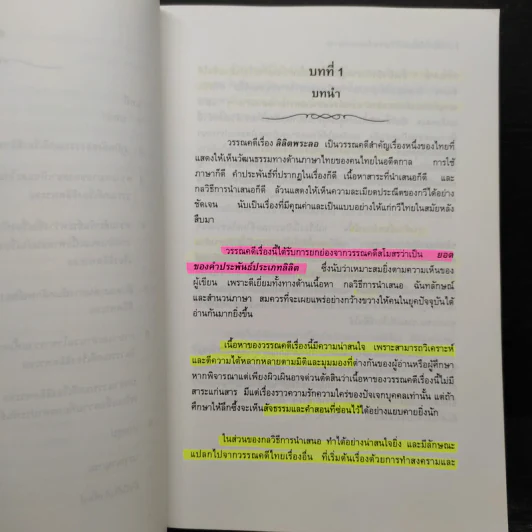 บทที่ 1
บทนำ
วรรณคดีเรื่อง ลิลิตพระลอ เป็นวรรณคดีสำคัญเรื่องหนึ่งของไทยที่
แสดงให้เห็นวัฒนธรรมทางด้านภาษาไทยของคนไทยในอดีตกาล การใช้
ภาษาก็ดี คำประพันธ์ที่ปรากฏในเรื่องก็ดี เนื้อหาสาระที่นำเสนอก็ดี และ
กลวิธีการนำเสนอก็ดี ล้วนแสดงให้เห็นความละเมียดประณีตของกวีได้อย่าง
ชัดเจน นับเป็นเรื่องที่มีคุณค่าและเป็นแบบอย่างให้แก่กวีไทยในสมัยหลัง
สืบมา
วรรณคดีเรื่องนี้ได้รับการยกย่องจากวรรณคดีสโมสรว่าเป็น ยอด
ของคำประพันธ์ประเภทลิลิต ซึ่งนับว่าเหมาะสมยิ่งตามความเห็นของ
ผู้เขียน เพราะดีเยี่ยมทั้งทางด้านเนื้อหา กลวิธีการนำเสนอ ฉันทลักษณ์
และสำนวนภาษา สมควรที่จะเผยแพร่อย่างกว้างขวางให้คนในยุคปัจจุบันได้
อ่านกันมากยิ่งขึ้น
เนื้อหาของวรรณคดีเรื่องนี้มีความน่าสนใจ เพราะสามารถวิเคราะห์
และตีความได้หลากหลายตามมิติและมุมมองที่ต่างกันของผู้อ่านหรือผู้ศึกษา
หากพิจารณาแต่เพียงผิวเผินอาจด่วนตัดสินว่าเนื้อหาของวรรณคดีเรื่องนี้ไม่มี
สาระแก่นสาร มีแต่เรื่องราวความรักความใคร่ของปัจเจกบุคคลเท่านั้น แต่ถ้า
ศึกษาให้ลึกซึ้งจะเห็นสัจธรรมและคำสอนที่ซ่อนไว้ได้อย่างแยบคายยิ่งนัก
ในส่วนของกลวิธีการนำเสนอ ทำได้อย่างน่าสนใจยิ่ง และมีลักษณะ
แปลกไปจากวรรณคดีไทยเรื่องอื่น ที่เริ่มต้นเรื่องด้วยการทำสงครามและ